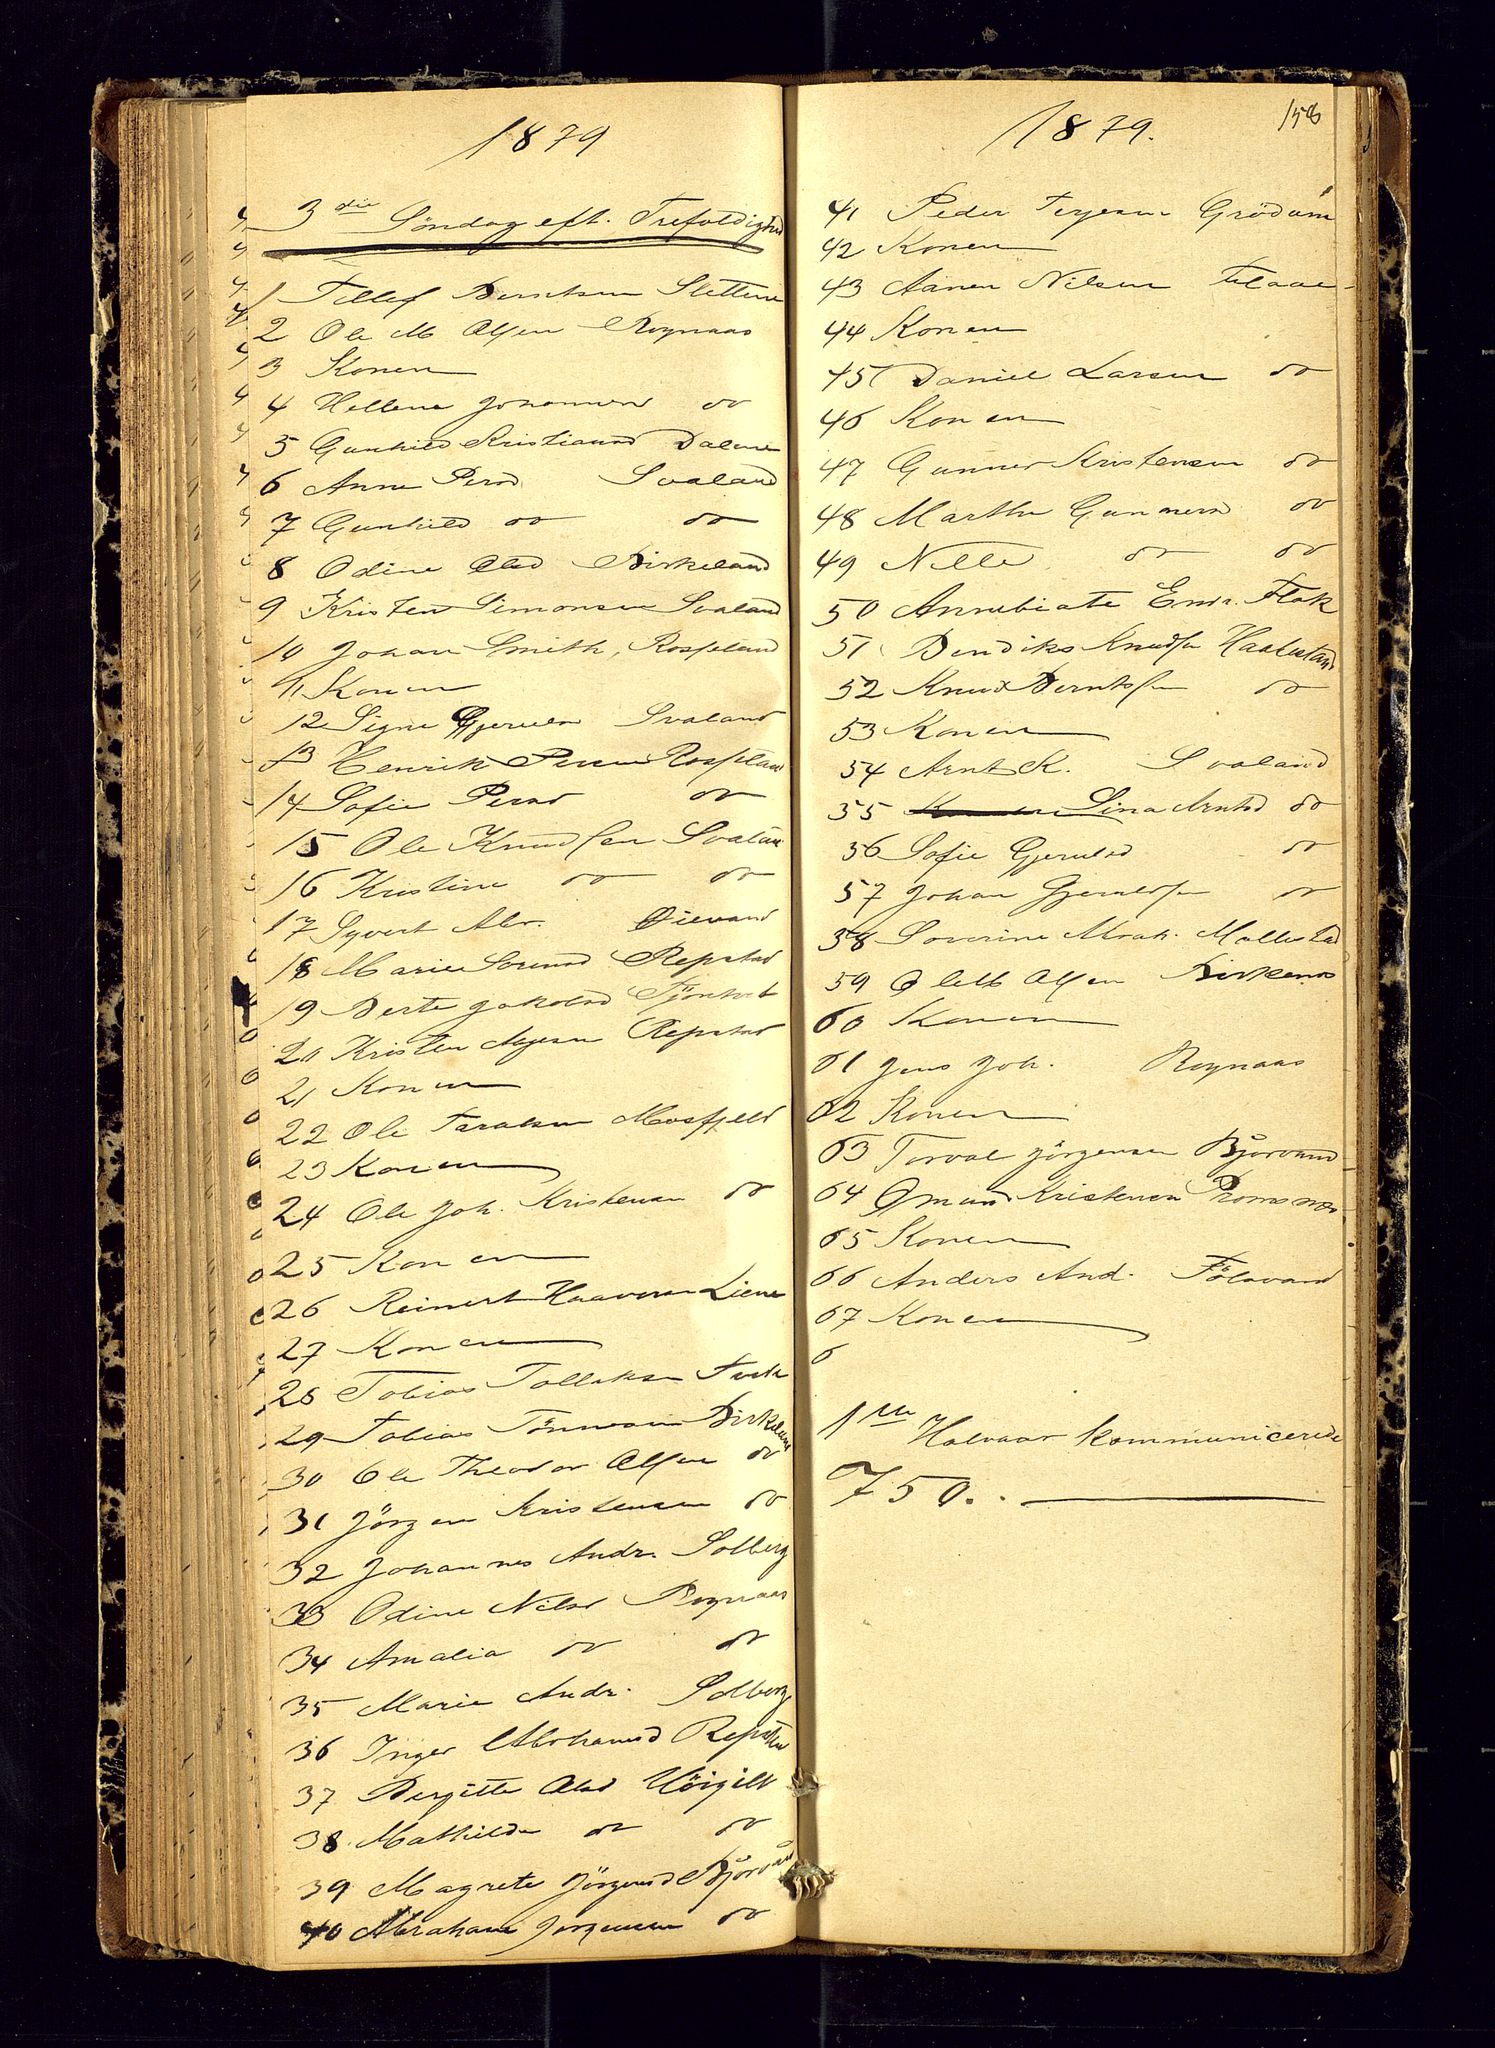 1879
3die Söndag eft. Trefoldighed
1 Tellef Berntsen Slettene
2 Ole M Olsen Rognaas
3 Konen
4 Hellene Johannesd do
5 Gunhild Kristiansd Dalene
6 Anne Persd Svaland
7 Gunhild do do
8 Odine Olsd Birkeland
9 Kristen Simonsen Svaland
10 Johan Smith, Rosseland
11 Konen
12 Signe Gjerulsd Svaland
13 Henrik Persen Rosseland
14 Sofie Persd do
15 Ole Knudsen Svaland
16 Kristine do do
17 Syvert Abr. Oievand
18 Marie Sorensd Repstad
19 Berte Jakobsd
20 Kristen Aagesen Repstad
21 Konen
22 Ole Taraldsen Mosfjeld
23 Konen
24 Ole Joh. Kristensen do
25 Konen
26 Reinert Haavorsen Liene
27 Konen
28 Tobias Tallaksen
29 Tobias Tönnesen Birkeland
30 Ole Theodor Olsen do
31 Jörgen Kristensen do
32 Johannes Andr. Solberg
33 Odine Nilsd Rognaas
34 Amalia do do
35 Marie Andr. Solberg
36 Inger Abrahamsd Repstad
37 Bergitte Olsd Höigilt
38 Mathilde do do
39 Magrete Jörgensd Bjorvand
40 Abraham Jorgensen do
1879.
158
41 Peder Terjesen Grödum
42 Konen
43 Aanen Nilsen
44 Konen
45 Daniel Larsen do
46 Konen
47 Gunner Kristensen do
48 Marthe Gunnersd do
49 Nille do do
50 Annebiate Endr. Flak
51 Bendiks Knudsen Haabestad
52 Knud Berntssen do
53 Konen
54 Arnt K. Svaland
55 Sina Arntsd do
56 Sofie Gjerulsd do
57 Johan Gjerulsen do
58 Soverine Abrah. Mollestad
59 Ole M Olsen Birkenes
60 Konen
61 Jens Joh. Rognaas
62 Konen
63 Torval Jörgensen Bjorvand
64 Omund Kristensen
65 Konen
66 Anders And. Fölevand
67 Konen
6
1ste Halvaar kommunicerede
750.